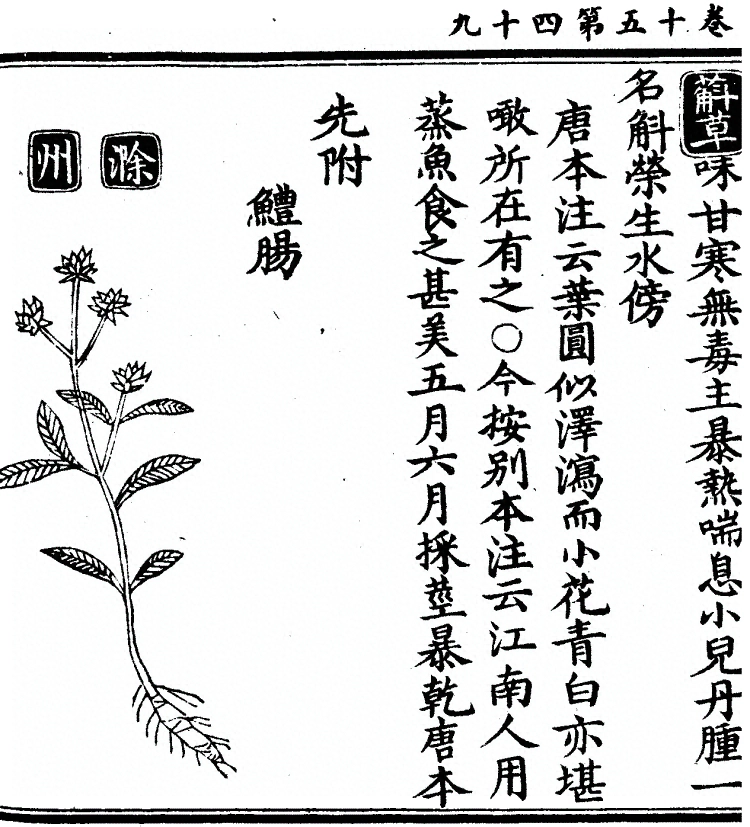 卷十五第四十九
蔛草味甘寒無毒主暴熱喘息小兒丹腫一
名蔛榮生水傍
唐本注云葉圓似澤瀉而小花青白亦堪
噉所在有之○今按别本注云江南人用
蒸魚食之甚美五月六月採莖暴乾唐本
先附
鱧腸
滁州